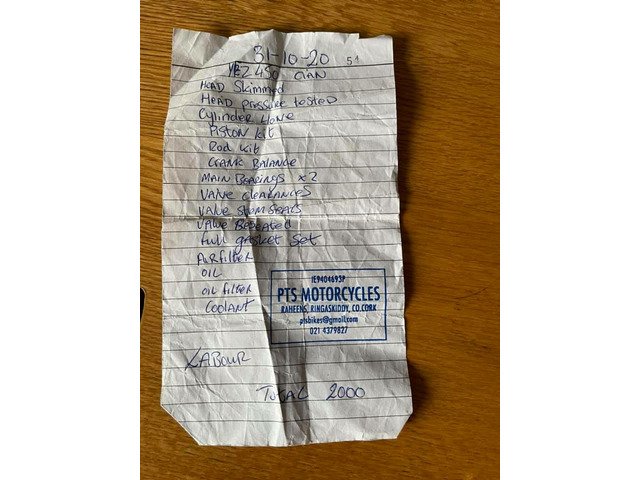 31-10-20 51
YZ 450 CIAN
HEAD Skimmed
HEAD pressure tested
Cylinder Hone
Piston kit
Rod kit
CRANK BALANCE
MAIN BEARINGS x2
VALVE CLEARANCES
VALVE STEM SEALS
VALVE Reseated
Full gasket set
AIRFilter
OIL
OIL filter
COOLANT
IE9404693P
PTS MOTORCYCLES
RAHEENS, RINGASKIDDY, CO.CORK
ptsbikes@gmail.com
021 4379827
LABOUR
TOTAL 2000